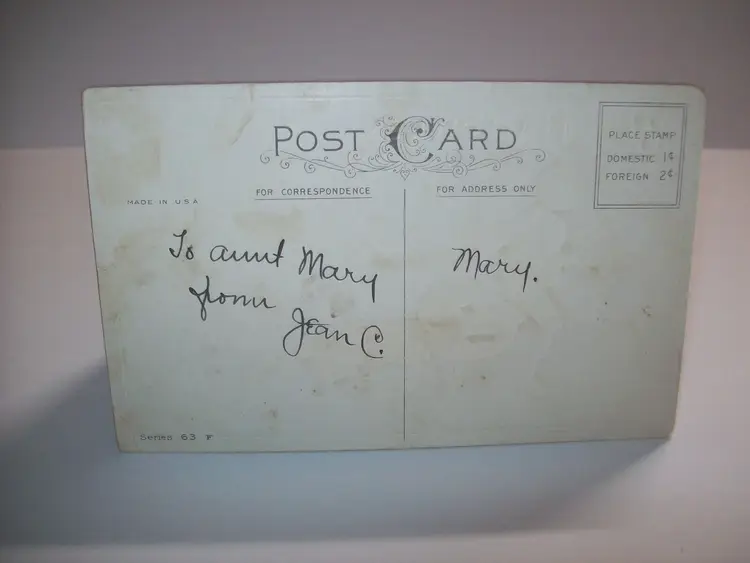 POST CARD
PLACE STAMP
DOMESTIC 1¢
FOREIGN 2¢
FOR CORRESPONDENCE
FOR ADDRESS ONLY
MADE IN U.S.A
To aunt Mary
from
Jean C.
Mary.
Series 63 F